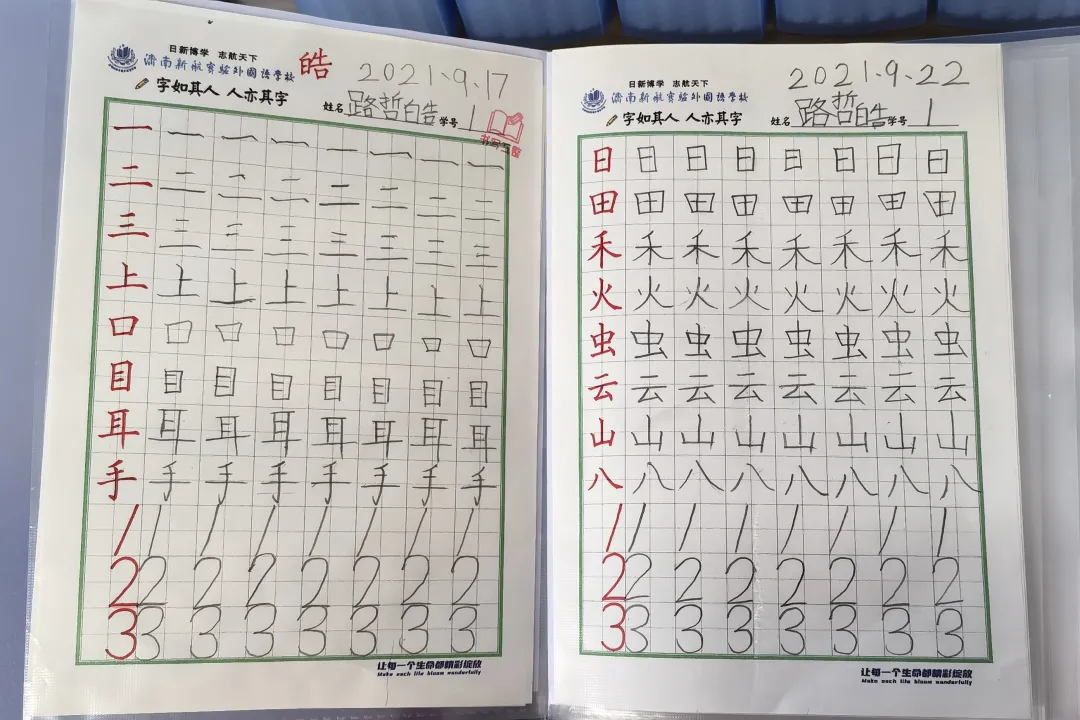 日新博学 志航天下
濟南新航實驗外國語學校 皓 2021.9.17
字如其人 人亦其字
姓名 路哲皓 学号 1
一 一 一 一 一 一 一 一
二 二 二 二 二 二 二 二
三 三 三 三 三 三 三 三
上 上 上 上 上 上 上 上
口 口 口 口 口 口 口 口
目 目 目 目 目 目 目 目
耳 耳 耳 耳 耳 耳 耳 耳
手 手 手 手 手 手 手 手
1 1 1 1 1 1 1 1
2 2 2 2 2 2 2 2
3 3 3 3 3 3 3 3
让每一个生命都精彩绽放
Make each life bloom wonderfully
日新博学 志航天下
濟南新航實驗外國語學校 2021.9.22
字如其人 人亦其字
姓名 路哲皓 学号 1
日 日 日 日 日 日 日 日
田 田 田 田 田 田 田 田
禾 禾 禾 禾 禾 禾 禾 禾
火 火 火 火 火 火 火 火
虫 虫 虫 虫 虫 虫 虫 虫
云 云 云 云 云 云 云 云
山 山 山 山 山 山 山 山
八 八 八 八 八 八 八 八
1 1 1 1 1 1 1 1
2 2 2 2 2 2 2 2
3 3 3 3 3 3 3 3
让每一个生命都精彩绽放
Make each life bloom wonderfully